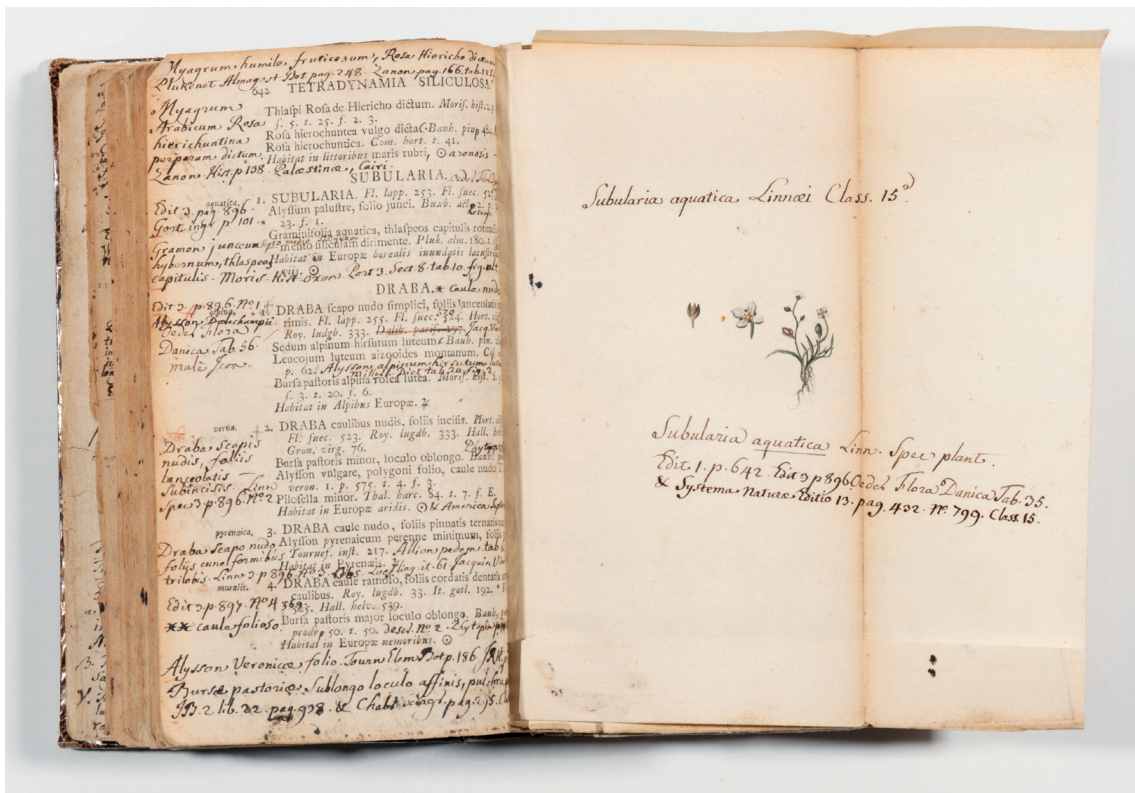 Myagrum humile fruticosum, Rosa Hiericho dictum
Plukenet Almagest Bot pag. 248. Zanon. pag. 166. tab. 125
642 TETRADYNAMIA SILICULOSA
Myagrum
Arabicum Rosa
hierichuntina
perperam dictum
Zanon. Hist. p 138.
Thlaſpi Roſa de Hiericho dictum. Moriſ. hiſt. 2.
ſ. 5. t. 25. f. 2. 3.
Roſa hierochuntea vulgo dicta. Bauh. pin. 484.
Roſa hierochuntica. Com. hort. 1. 41.
Habitat in littoribus maris rubri, ☉
Palæstinæ, Cairi.
SUBULARIA.
aquatica.
Edit 3. pag. 896.
Gort. ingr p 101.
Gramen junceum
hybernum, thlaspeos
capitulis. Moris. Hist. Oxon Part 3. Sect. 8. tab 10 fig. ult
1. SUBULARIA. Fl. lapp. 253. Fl. ſuec. 52
Alyſſum paluſtre, folio junci. Buxb. act. 2.
23. f. 1.
Graminifolia aquatica, thlaſpeos capitulis rotundis
mento ſiliculam dirimente. Pluk. alm. 180. t.
Habitat in Europæ borealis inundatis lacuſtribus
☉
DRABA. * caule nudo
Edit 3. p. 896. No 1
Alysson
Oeder Flora
Danica Tab. 56.
male Icon.
1. DRABA ſcapo nudo ſimplici, foliis lanceolatis
rimis. Fl. lapp. 255. Fl. ſuec. 524. Hort.
Roy. lugdb. 333. Dalib. pariſ. 197. Jacq. Vin
Sedum alpinum hirſutum luteum. Bauh. pin. 2
Leucojum luteum aizoides montanum. Col.
p. 62. Alysson alpinum hirsutum luteum
Burſa paſtoris alpina roſea lutea. Moriſ. hiſt. 2.
ſ. 3. t. 20. f. 6.
Habitat in Alpibus Europæ. ♃
verna.
Draba scapis
nudis, foliis
lanceolatis
subincisis. Linn
Spec 3. p. 896. No 2
2. DRABA caulibus nudis, foliis inciſis. Hort.
Fl. ſuec. 523. Roy. lugdb. 333. Hall. helv
Gron. virg. 76.
Burſa paſtoris minor, loculo oblongo. Bauh. pin
Alyſſon vulgare, polygoni folio, caule nudo T
veron. 1. p. 575. t. 4. f. 3.
Piloſella minor. Thal. harc. 84. t. 7. f. E.
Habitat in Europæ aridis. ☉ & America
pyrenaica.
Draba scapo nudo
foliis cuneiformibus
trilobis. Linn 3 p 896. No 3
3. DRABA caule nudo, foliis pinnatis ternatisque
Alyſſon pyrenaicum perenne minimum, foliis
Tournef. inſt. 217. Allion pedem tab
Habitat in Pyrenæis.
Loefling it. 61 Jacquin Vin
muralis.
Edit 3. p. 897. No 4
** caule folioso
4. DRABA caule ramoſo, foliis cordatis dentatis
caulibus. Roy. lugdb. 33. It. gotl. 192.
525. Hall. helv. 539.
Burſa paſtoris major loculo oblongo. Bauh. pin
prodr. 50. t. 50. descr. No. 2.
Habitat in Europæ nemoribus. ☉
Alysson Veronicæ folio. Tourn Elem Bot p. 186
Bursæ pastoriæ Sublongo loculo affinis, pulchra
JB. 2 lib. 22. pag. 938. & Chabr.
Subularia aquatica Linnæi Class. 15a.
Subularia aquatica Linn. Spec plant.
Edit 1. p. 642. Edit 3 p 896 Oeder Flora Danica Tab. 35.
& Systema Naturæ Editio 13. pag. 432. No. 799. Class. 15.